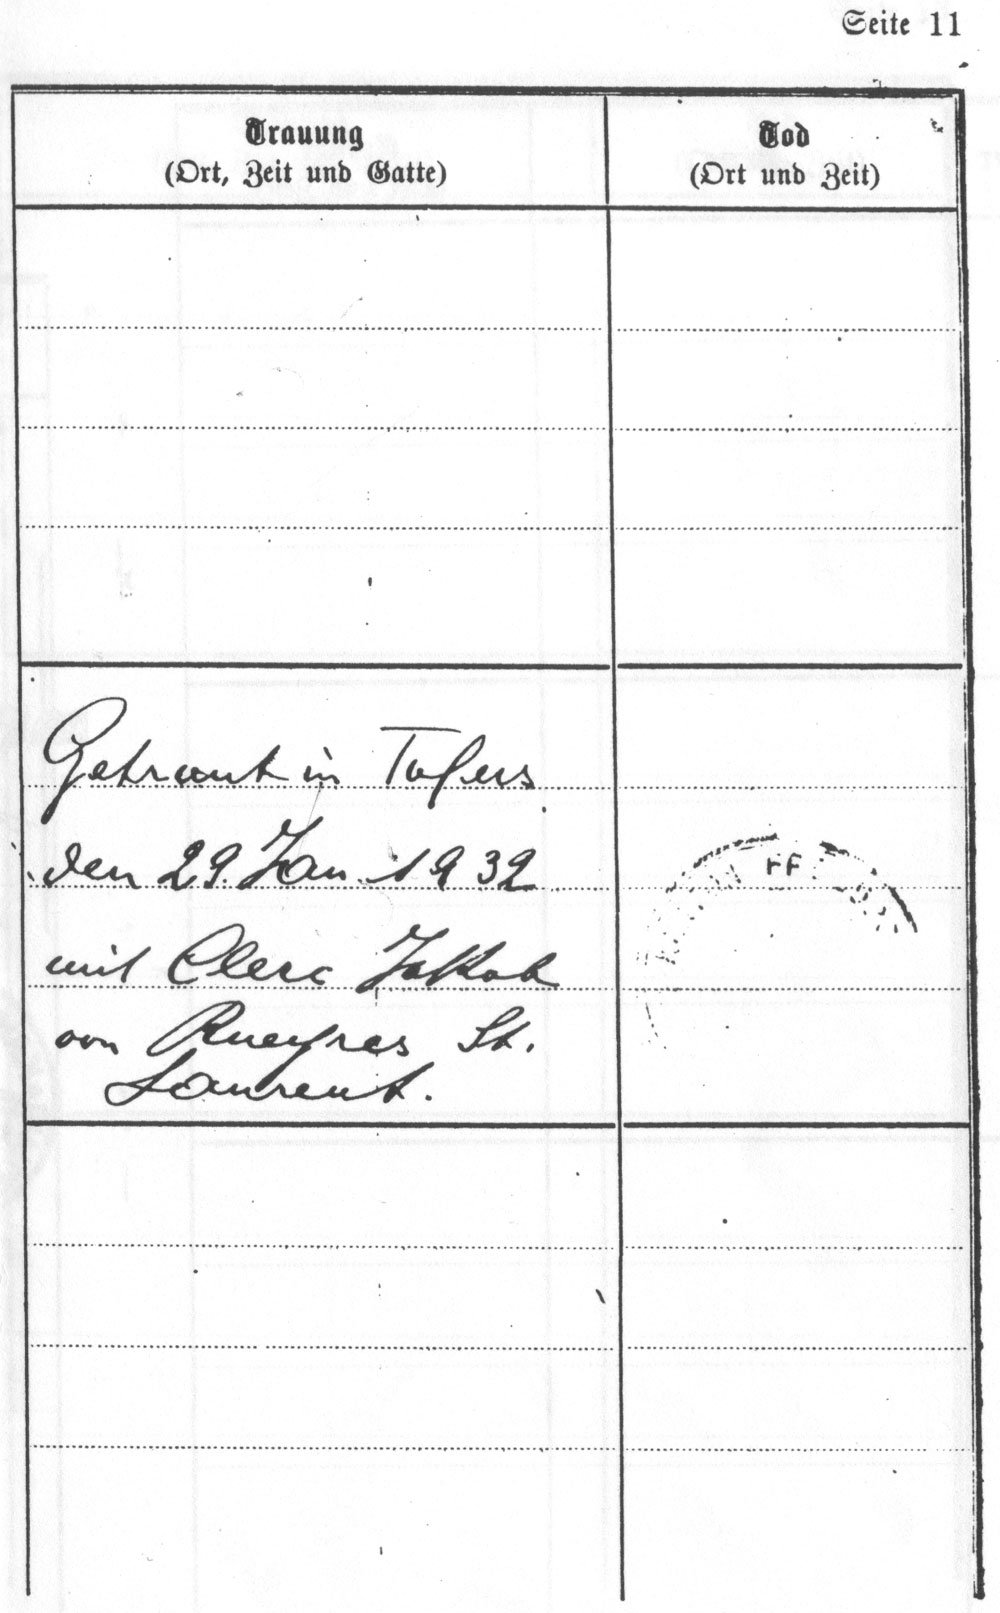 Seite 11
Trauung
(Ort, Zeit und Gatte)
Tod
(Ort und Zeit)
Getraut in Tafers
den 29. Jan. 1932
mit Clerc Jakob
von Rueyres St.
Laurent.